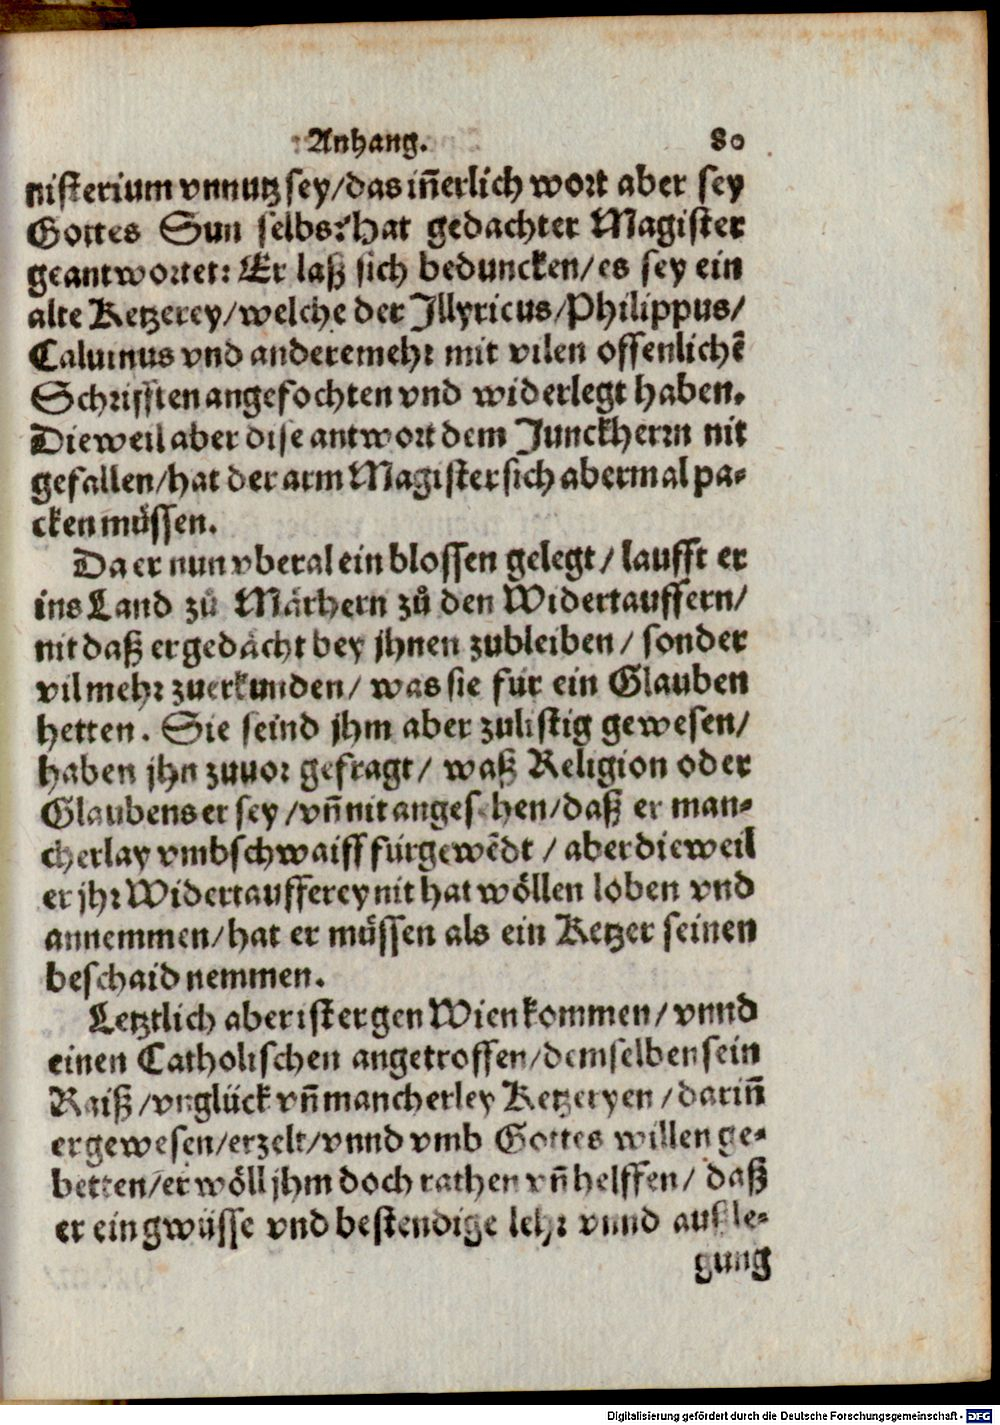 Anhang. 80
nisterium vnnutz sey/das iñerlich wort aber sey
Gottes Sun selbs? Hat gedachter Magister
geantwortet: Er laß sich beduncken/es sey ein
alte Ketzerey/welche der Illyricus/Philippus/
Caluinus vnd andere mehr mit vilen offenlichẽ
Schrifften angefochten vnd widerlegt haben.
Dieweil aber dise antwort dem Junckherrn nit
gefallen/hat der arm Magister sich abermal pa-
cken müssen.
Da er nun vberal ein blossen gelegt/ laufft er
ins Land zů Märhern zů den Widertauffern/
nit daß er gedächt bey jhnen zubleiben/ sonder
vil mehr zuerkunden/ was sie für ein Glauben
hetten. Sie seind jhm aber zulistig gewesen/
haben jhn zuuor gefragt/ waß Religion oder
Glaubens er sey/vñ nit angesehen/daß er man-
cherlay vmbschwaiff fürgewẽdt/ aber dieweil
er jhr Widertaufferey nit hat wöllen loben vnd
annemmen/hat er müssen als ein Ketzer seinen
beschaid nemmen.
Letztlich aber ist er gen Wien kommen/ vnnd
einen Catholischen angetroffen/demselben sein
Raiß/vnglück vñ mancherley Ketzeryen/dariñ
er gewesen/erzelt/vnnd vmb Gottes willen ge-
betten/er wöll jhm doch rathen vñ helffen/ daß
er ein gwüsse vnd bestendige lehr vnnd außle-
gung
Digitalisierung gefördert durch die Deutsche Forschungsgemeinschaft - DFG